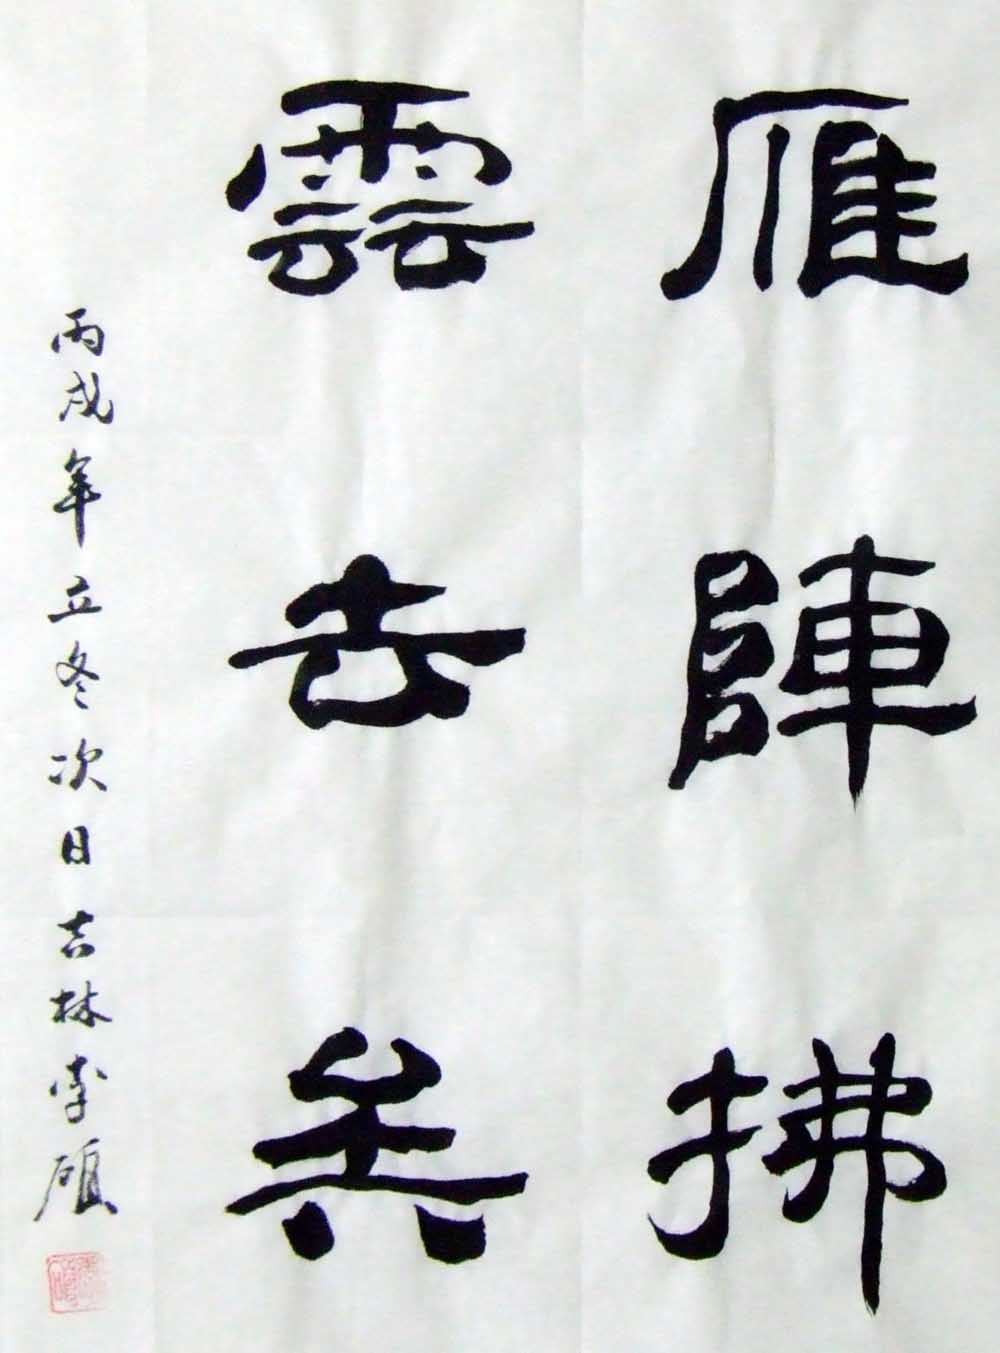 雁陣拂
雲去矣
丙戌年立冬次日吉林李碩